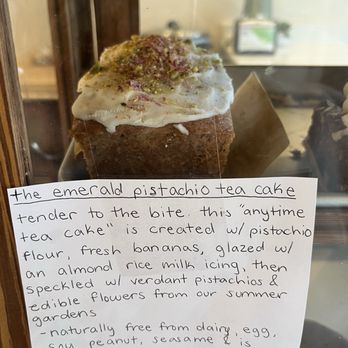 the emerald pistachio tea cake
tender to the bite. this "anytime
tea cake" is created w/ pistachio
flour, fresh bananas, glazed w/
an almond rice milk icing, then
speckled w/ verdant pistachios &
edible flowers from our summer
gardens
- naturally free from dairy, egg,
soy, peanut, seasame & is